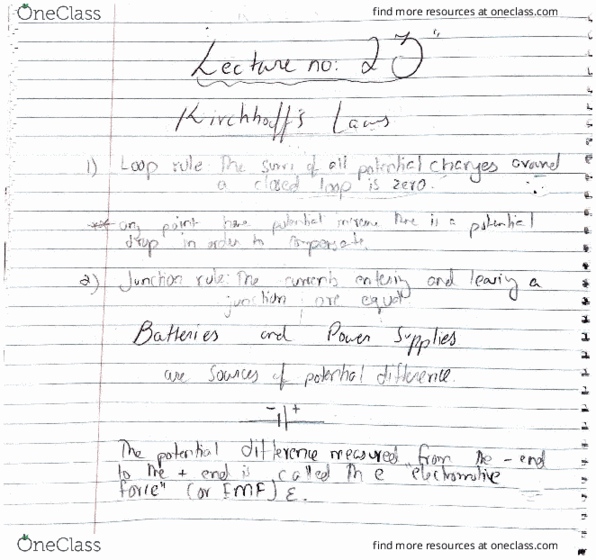 OneClass
find more resources at oneclass.com
Lecture no: 23
Kirchhoff's Laws
1) Loop rule: The sum of all potential changes around
a closed loop is zero.
** any point have potential increase there is a potential
drop in order to
2) Junction rule: The currents entering and leaving a
junction are equal
Batteries and Power Supplies
are sources of potential difference.
- +
The potential difference measured from the - end
to the + end is called the "electromotive
force" (or EMF) ε.
OneClass
find more resources at oneclass.com